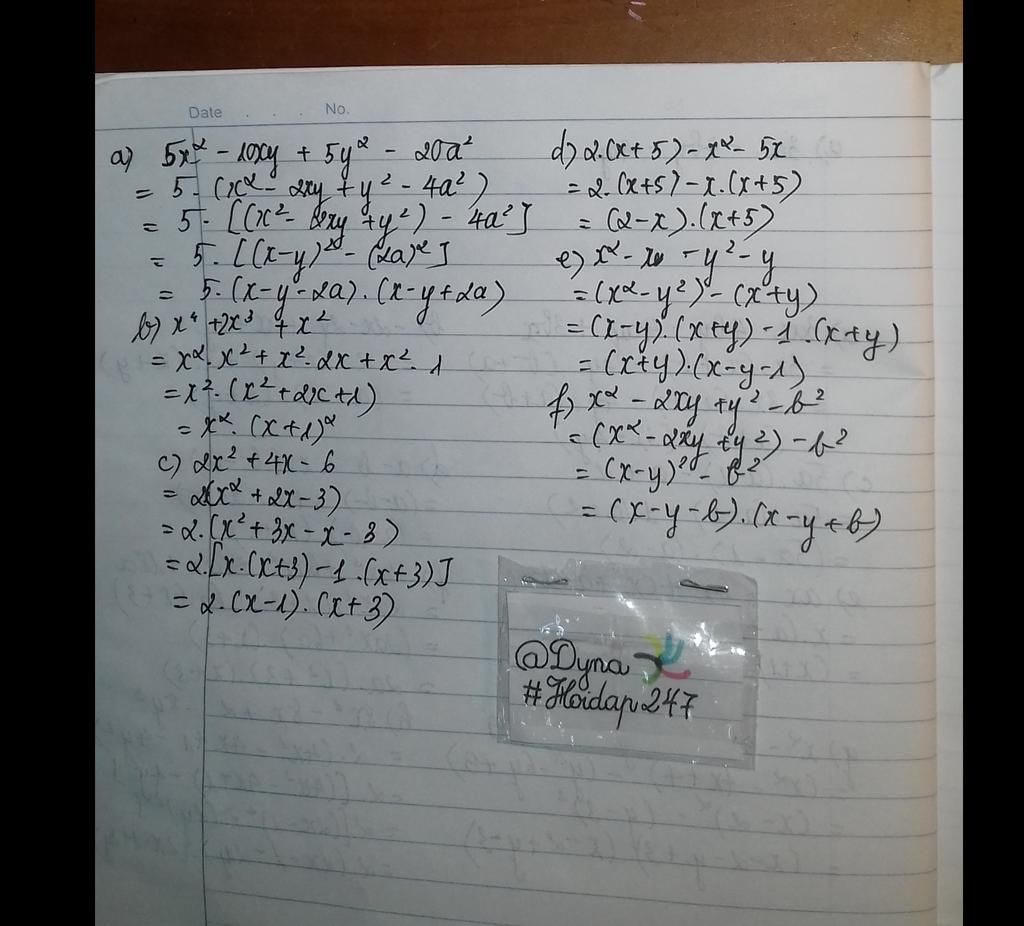 Date . . . No.
a) 5x² - 10xy + 5y² - 20a²
= 5. (x² - 2xy + y² - 4a²)
= 5. [(x² - 2xy + y²) - 4a²]
= 5. [(x-y)² - (2a)²]
= 5.(x-y-2a).(x-y+2a)
b) x⁴ + 2x³ + x²
= x².x² + x².2x + x².1
= x².(x²+2x+1)
= x².(x+1)²
c) 2x² + 4x - 6
= 2(x² + 2x - 3)
= 2.(x² + 3x - x - 3)
= 2.[x.(x+3) - 1.(x+3)]
= 2.(x-1).(x+3)
d) 2.(x+5) - x² - 5x
= 2.(x+5) - x.(x+5)
= (2-x).(x+5)
e) x² - x - y² - y
= (x² - y²) - (x+y)
= (x-y).(x+y) - 1.(x+y)
= (x+y).(x-y-1)
f) x² - 2xy + y² - b²
= (x² - 2xy + y²) - b²
= (x-y)² - b²
= (x-y-b).(x-y+b)
@Dyna
#Hoidap247